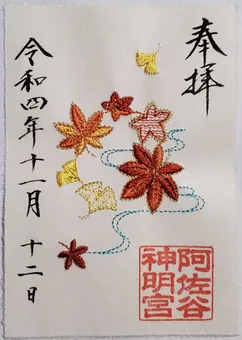 奉拝
阿佐谷
神明宮
令和四年十一月 十二日